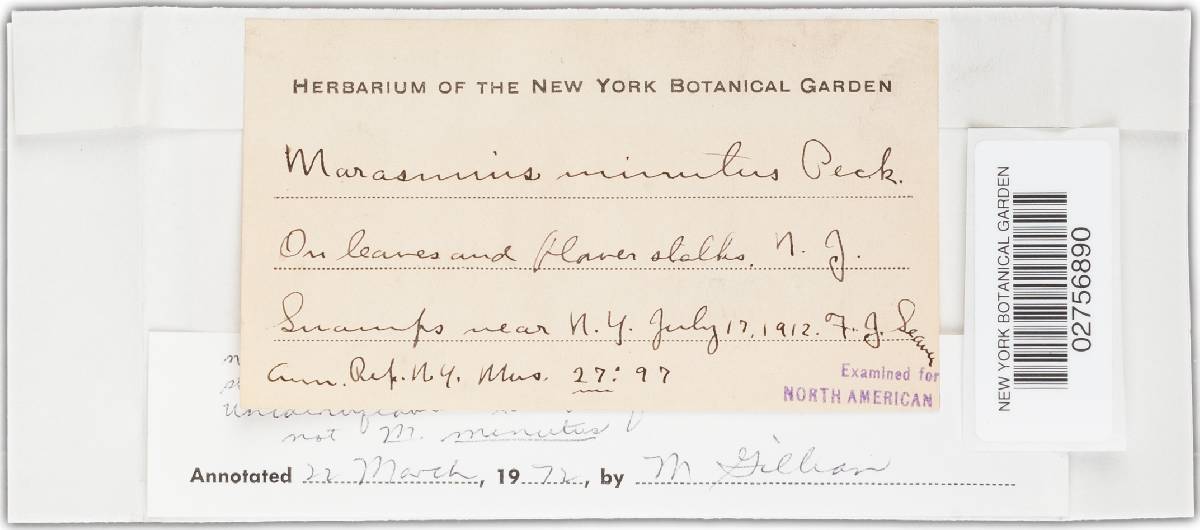 HERBARIUM OF THE NEW YORK BOTANICAL GARDEN
Marasmius minutus Peck.
On leaves and flower stalks, N. J.
Swamps near N.Y. July 17, 1912. F. J. Seaver
Ann. Rep. N.Y. Mus. 27: 97
Examined for
NORTH AMERICAN
not M. minutus
Annotated 22 March, 1972, by M Gillian
NEW YORK BOTANICAL GARDEN
02756890